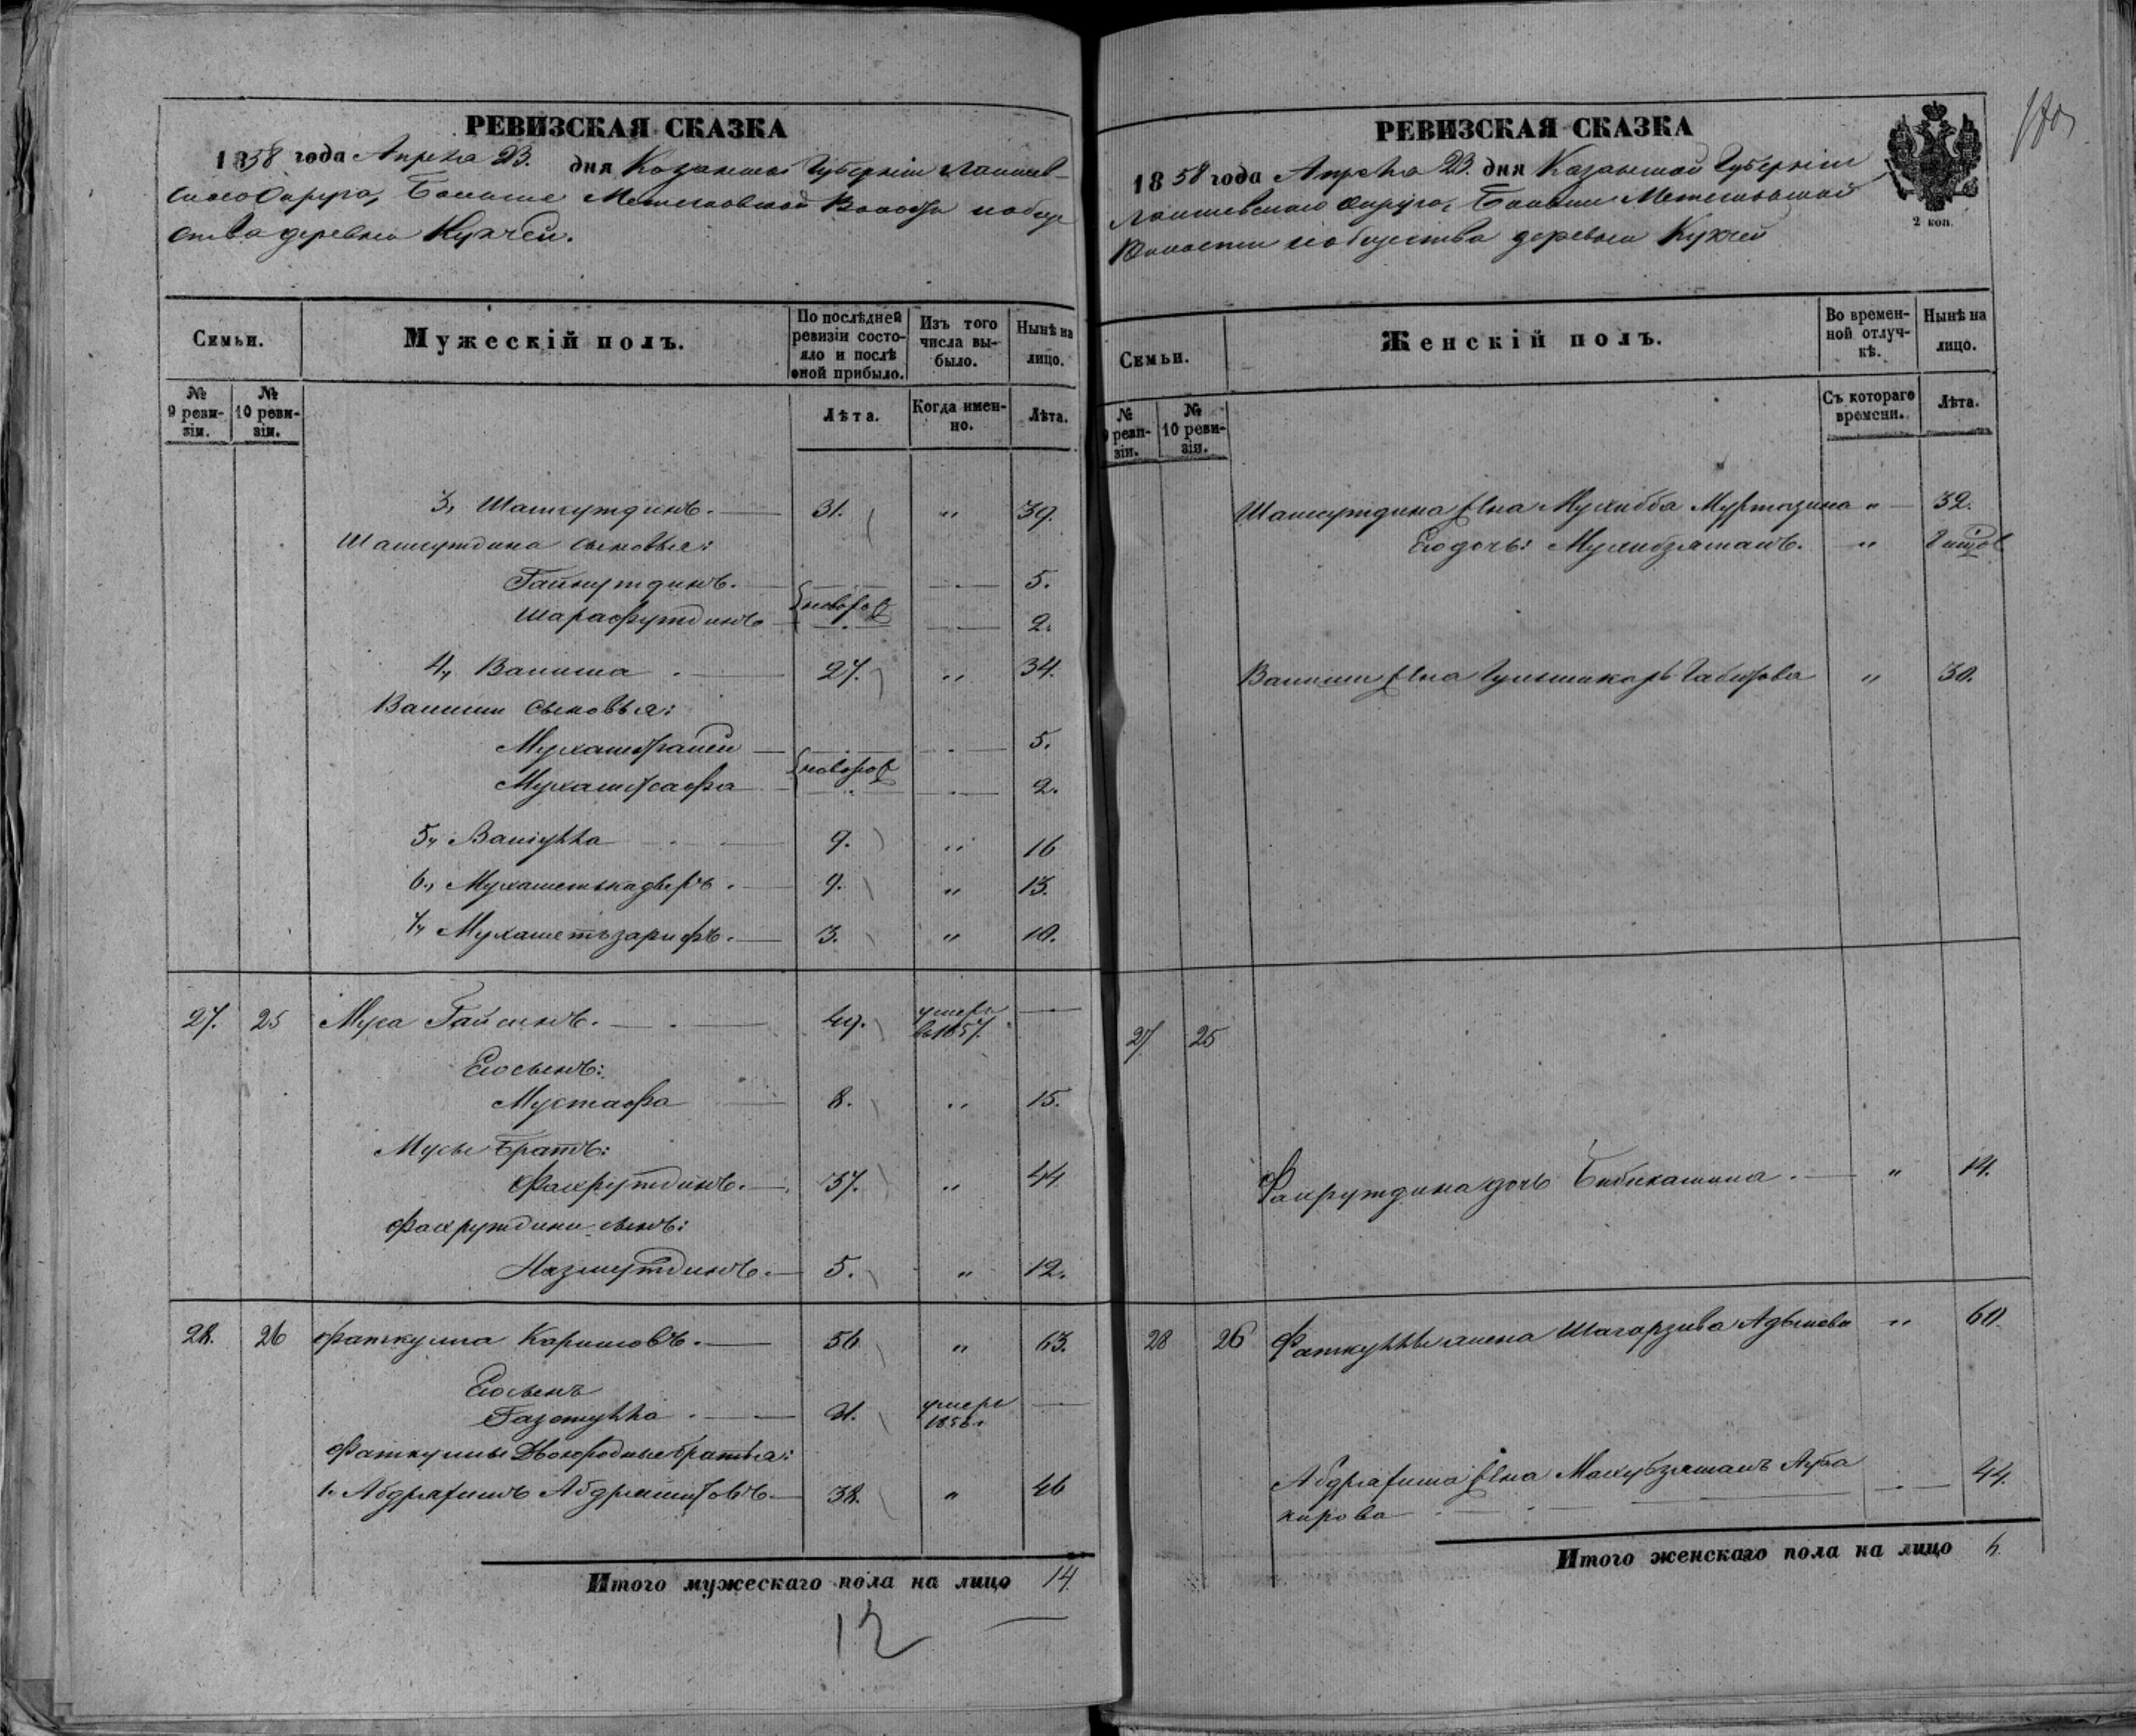 РЕВИЗСКАЯ СКАЗКА
1858 года Апреля 23. дня Казанской Губерніи Лаишев-
скаго Округа, Больше Метесковской Волости и общe
ства деревни Кукчей.
Семьи.
Мужескій полъ.
По послѣдней ревизіи состояло и послѣ оной прибыло.
Изъ того числа выбыло.
Нынѣ на лицо.
№ 9 ревизіи.
№ 10 ревизіи.
Лѣта.
Когда именно.
Лѣта.
3, Шамсутдинъ. 31. " 39.
Шамсутдина сыновья:
Гайнутдинъ. 5.
новорож
Шарафутдинъ 2.
4, Валиша 27. " 34.
Валиши сыновья:
5.
новорож
2.
5, 9. " 16
6, Мухаметькадыръ. 9. " 13.
7, Мухаметьзарифъ. 3. " 10.
27. 25 Муса Гайсинъ. 49. умеръ въ 1857.
Его сынъ:
Мустафа 8. " 15.
Мусы братъ:
Фахрутдинъ. 37. " 44
Фахрутдина сынъ:
Назмутдинъ. 5. " 12.
28. 26 Фаткулла Каримовъ. 56 " 63.
Его сынъ
21. умеръ
Фаткуллы Двоюродные братья:
1. 38. " 46
Итого мужескаго пола на лицо 14
12
РЕВИЗСКАЯ СКАЗКА
1858 года Апреля 23. дня Казанской Губерніи
Лаишевскаго Округа, Больше Метесковской
Волости и общества деревни Кукчей
2 коп.
Семьи.
Женскій полъ.
Во временной отлучкѣ.
Нынѣ на лицо.
№ 9 ревизіи.
№ 10 ревизіи.
Съ котораго времени.
Лѣта.
Шамсутдина жена Мухибба Муртазина " 32.
Его дочь: Мухибзямалъ. "
Валиши жена Габитова " 30.
27 25
Фахрутдина дочь Бибикамила. " 14.
28 26 Фаткуллы жена " 60
жена Махубзямалъ Абуба
кирова 44.
Итого женскаго пола на лицо